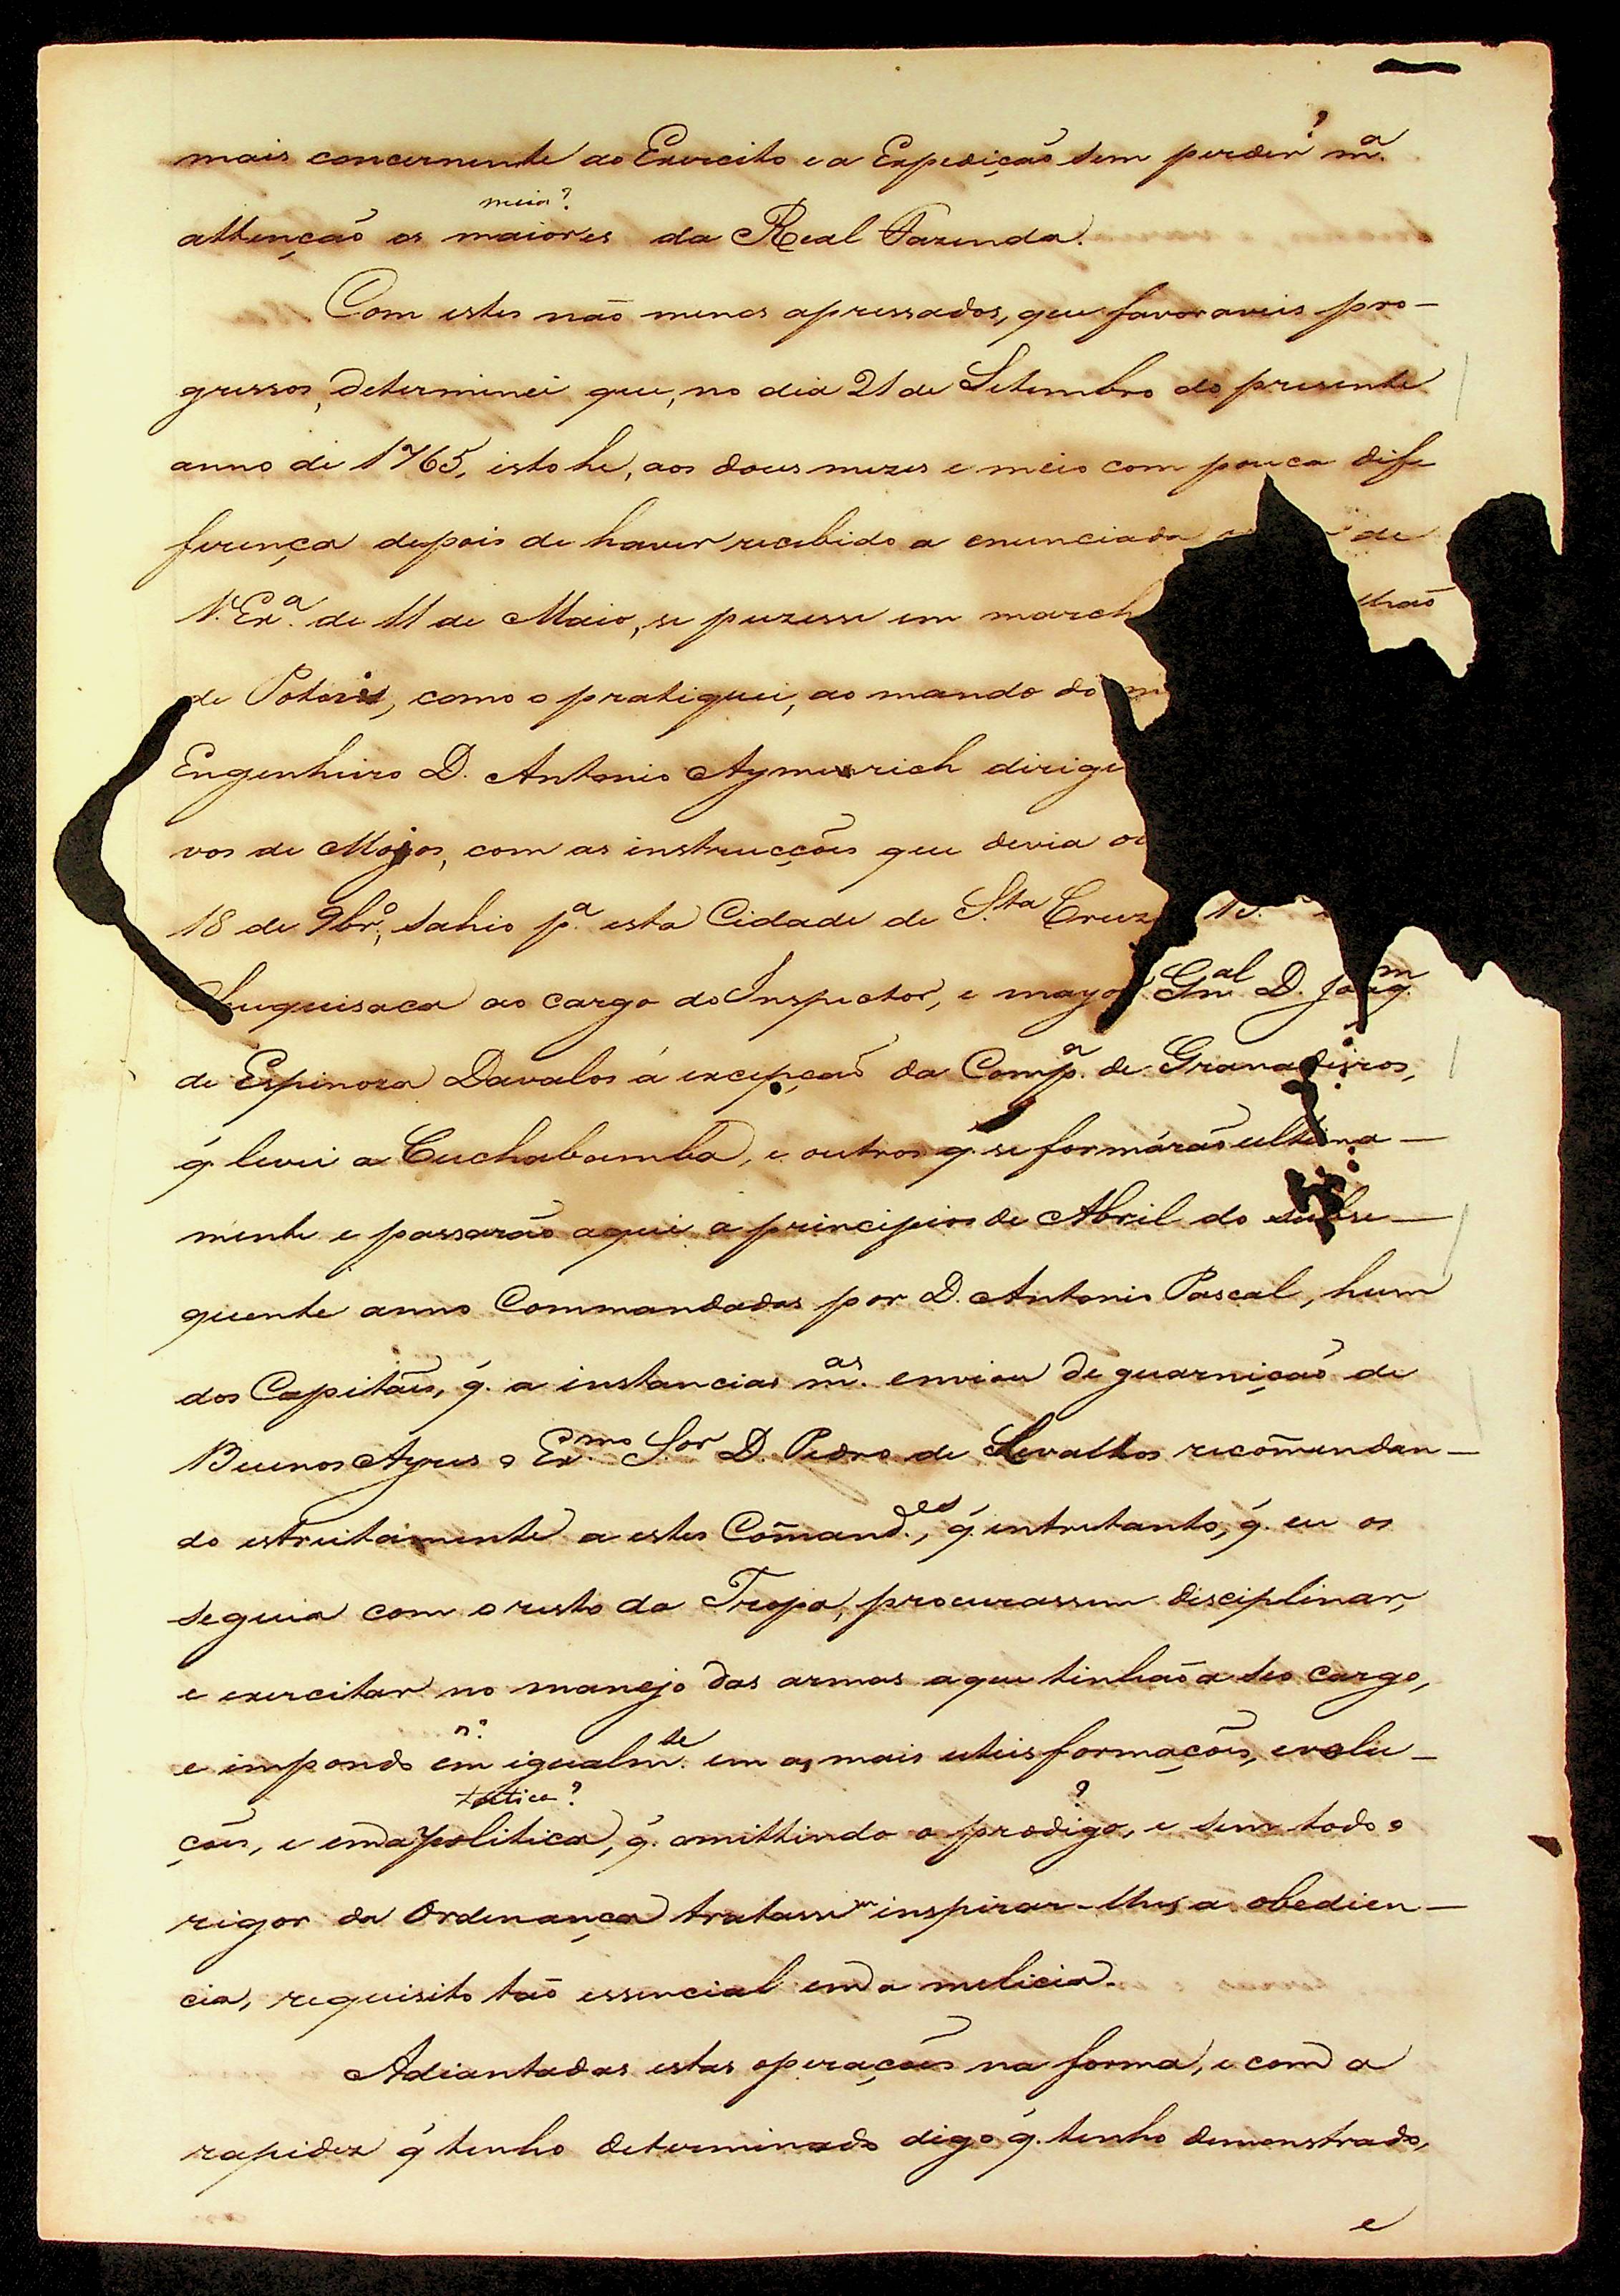 mais concernente ao Exercito e a Expedição sem perder? mª.
meia?
attenção os maiores da Real Fazenda.
Com estes não menos apressados, que favoraveis pro-
gressos, determinei que, no dia 21 de Setembro do presente
anno de 1765, isto he, aos dous mezes e meio com pouca dife
ferença depois de haver recebido a enunciada de
V. Exª. de 11 de Maio, se puzesse em march lhão
de Potosis, como o pratiquei, ao mando do
Engenheiro D. Antonio Aymerich dirigi
vos de Mojos, com as instrucções que devia
18 de 9brº, sahio pª. esta Cidade de Sta Cruz
Chuquisaca ao cargo do Inspector, e mayor Gnal D. Joaqm.
de Espinosa Davalos á excepção da Compª. de Granadeiros,
q̃ levei a Cuchabamba, e outros q̃ se formárão ultima-
mente e passarão aqui a principios de Abril do subse-
quente anno Commandadas por D. Antonio Pascal, hum
dos Capitães, q̃. a instancias mas. enviou de guarnição de
Buenos Ayres o Exmo. Sor D. Pedro de Sevallos recom̃endan-
do estreitamente a estes Com̃andes., q̃. entretanto, q̃. eu os
seguia com o resto da Tropa, procurassem disciplinar,
e exercitar no manejo das armas a que tinhão a seo cargo,
n?
e impondo em igualmte. em as mais uteis formações, evolu-
tatica? ?
ções, e em a politica, q̃. omittindo o prodigo, e sem todo o
rigor da Ordenança tratassem inspirar-lhes a obedien-
cia, requisito tão essencial em a melicia.
Adiantadas estas operações na forma, e com a
rapidez q̃ tenho determinado digo q̃. tenho demonstrado,
e